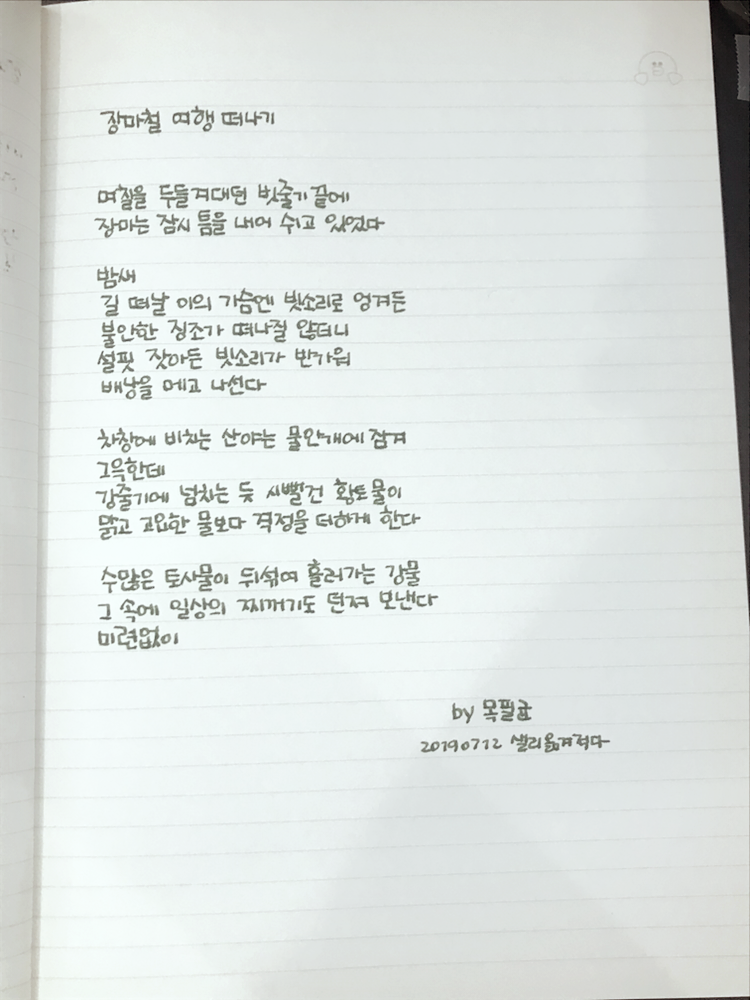 장마철 여행 떠나기
며칠을 두들겨대던 빗줄기 끝에
장마는 잠시 틈을 내어 쉬고 있었다
밤새
길 떠날 이의 가슴엔 빗소리로 엉겨든
불안한 징조가 떠나질 않더니
설핏 잦아든 빗소리가 반가워
배낭을 메고 나선다
차창에 비치는 산야는 물안개에 잠겨
그윽한데
강줄기에 넘치는 듯 시뻘건 황토물이
맑고 고요한 물보다 격정을 더하게 한다
수많은 토사물이 뒤섞여 흘러가는 강물
그 속에 일상의 찌꺼기도 던져 보낸다
미련없이
by 목필균
20190712 샐리 옮겨적다